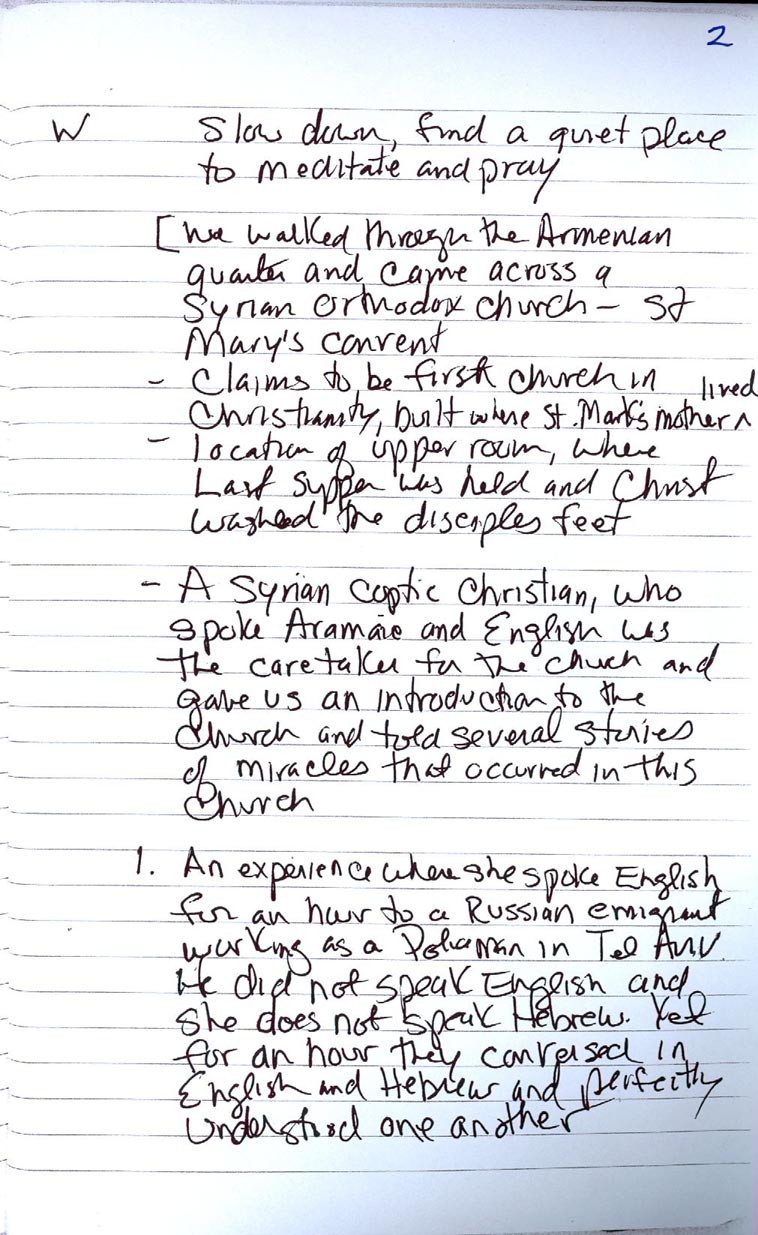 2
W Slow down, find a quiet place
to meditate and pray
[We walked through the Armenian
quarter and came across a
Syrian Orthodox church - St
Mary's convent
- Claims to be first church in
Christianity, built where St. Mark's mother ^ lived
- location of upper room, where
Last Supper was held and Christ
washed the disciples feet
- A Syrian Coptic Christian, who
spoke Aramaic and English was
the caretaker for the church and
gave us an introduction to the
Church and told several stories
of miracles that occurred in this
Church
1. An experience where she spoke English
for an hour to a Russian emigrant
working as a Policeman in Tel Aviv.
He did not speak English and
she does not speak Hebrew. Yet
for an hour they conversed in
English and Hebrew and perfectly
understood one another